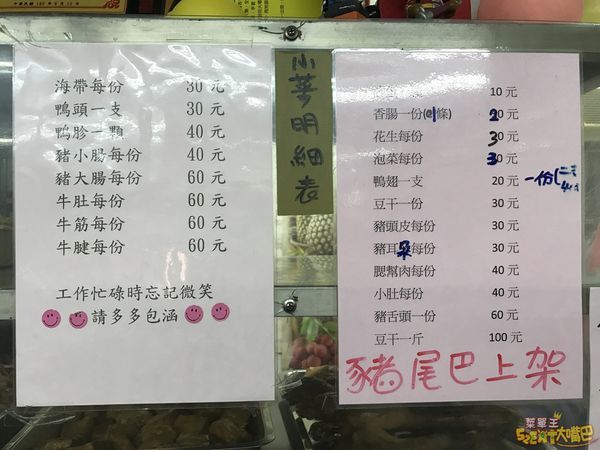 海帶每份 30 元
鴨頭一支 30 元
鴨胗一顆 40 元
豬小腸每份 40 元
豬大腸每份 60 元
牛肚每份 60 元
牛筋每份 60 元
牛腱每份 60 元
工作忙碌時忘記微笑
請多多包涵
小菜明細表
10 元
香腸一份(1條) 20 元
花生每份 30 元
泡菜每份 30 元
鴨翅一支 20 元 一份
豆干一份 30 元
豬頭皮每份 30 元
豬耳朵每份 30 元
腮幫肉每份 40 元
小肚每份 40 元
豬舌頭一份 60 元
豆干一斤 100 元
豬尾巴上架
菜單王
大嘴巴